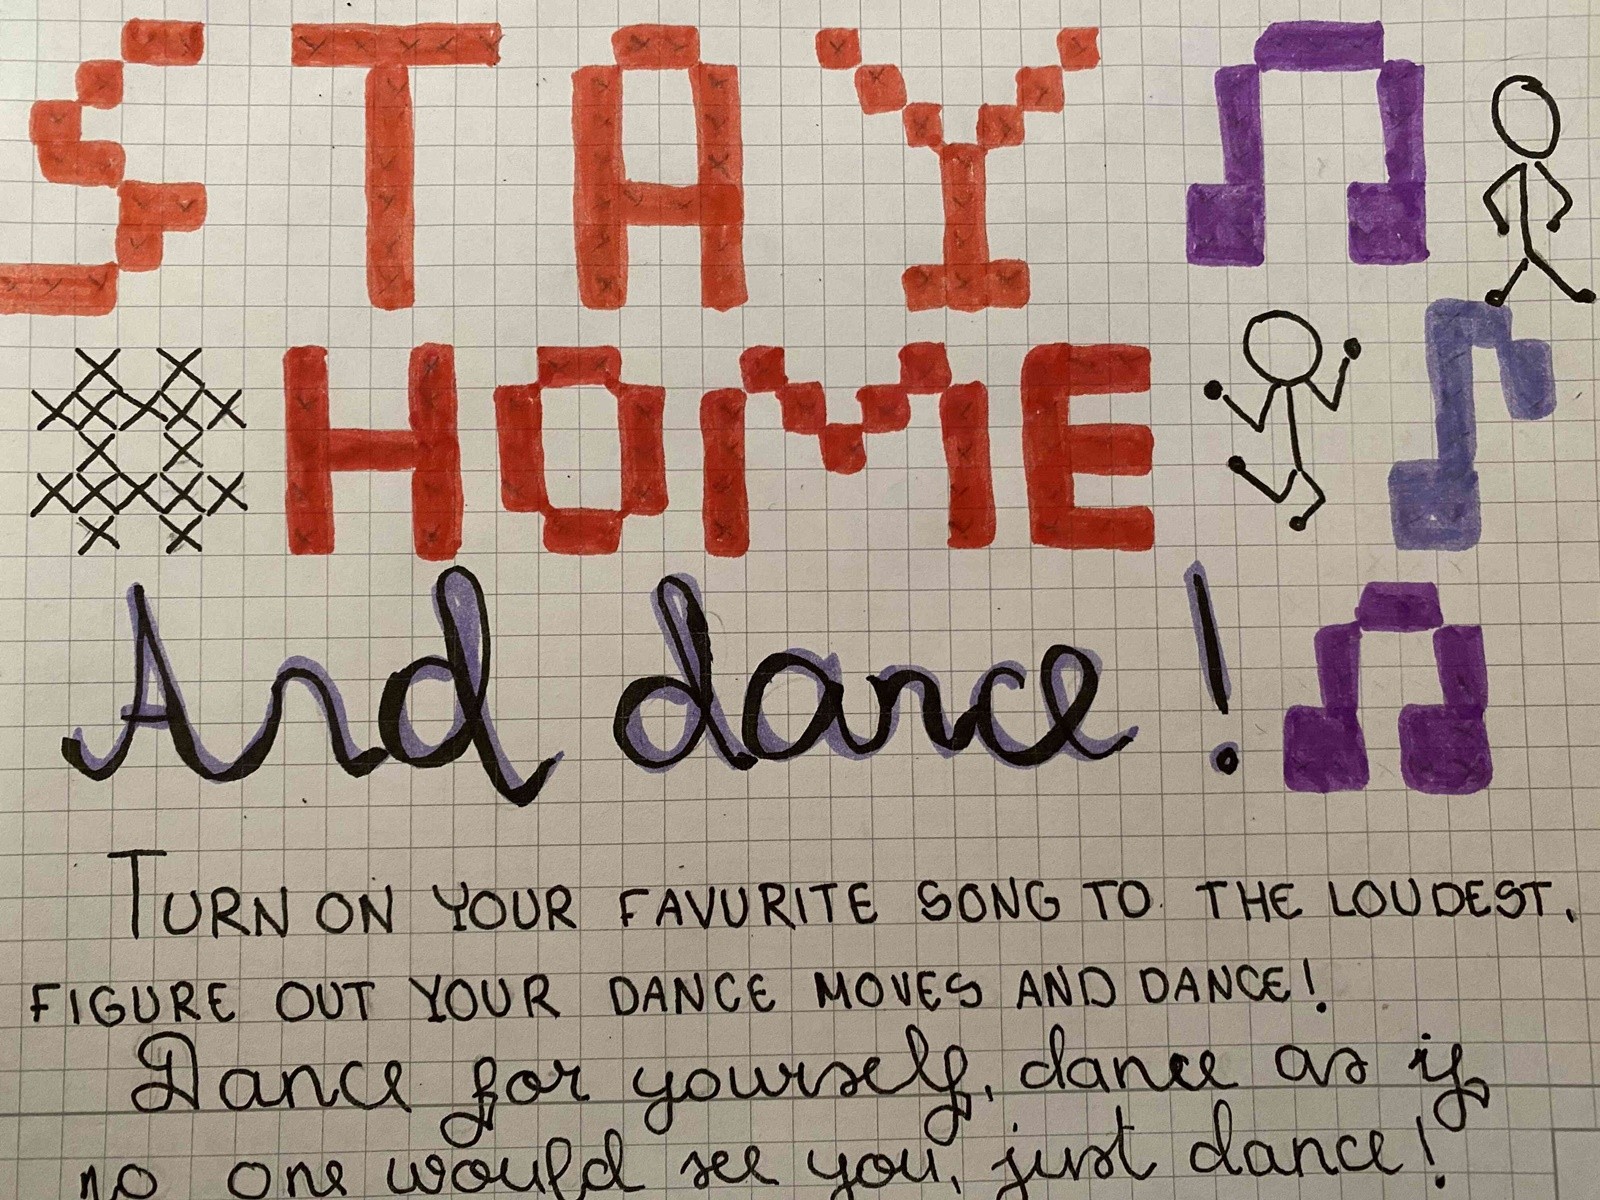 STAY
#HOME
And dance!
TURN ON YOUR FAVURITE SONG TO THE LOUDEST.
FIGURE OUT YOUR DANCE MOVES AND DANCE!
Dance for yourself, dance as if
no one would see you, just dance!